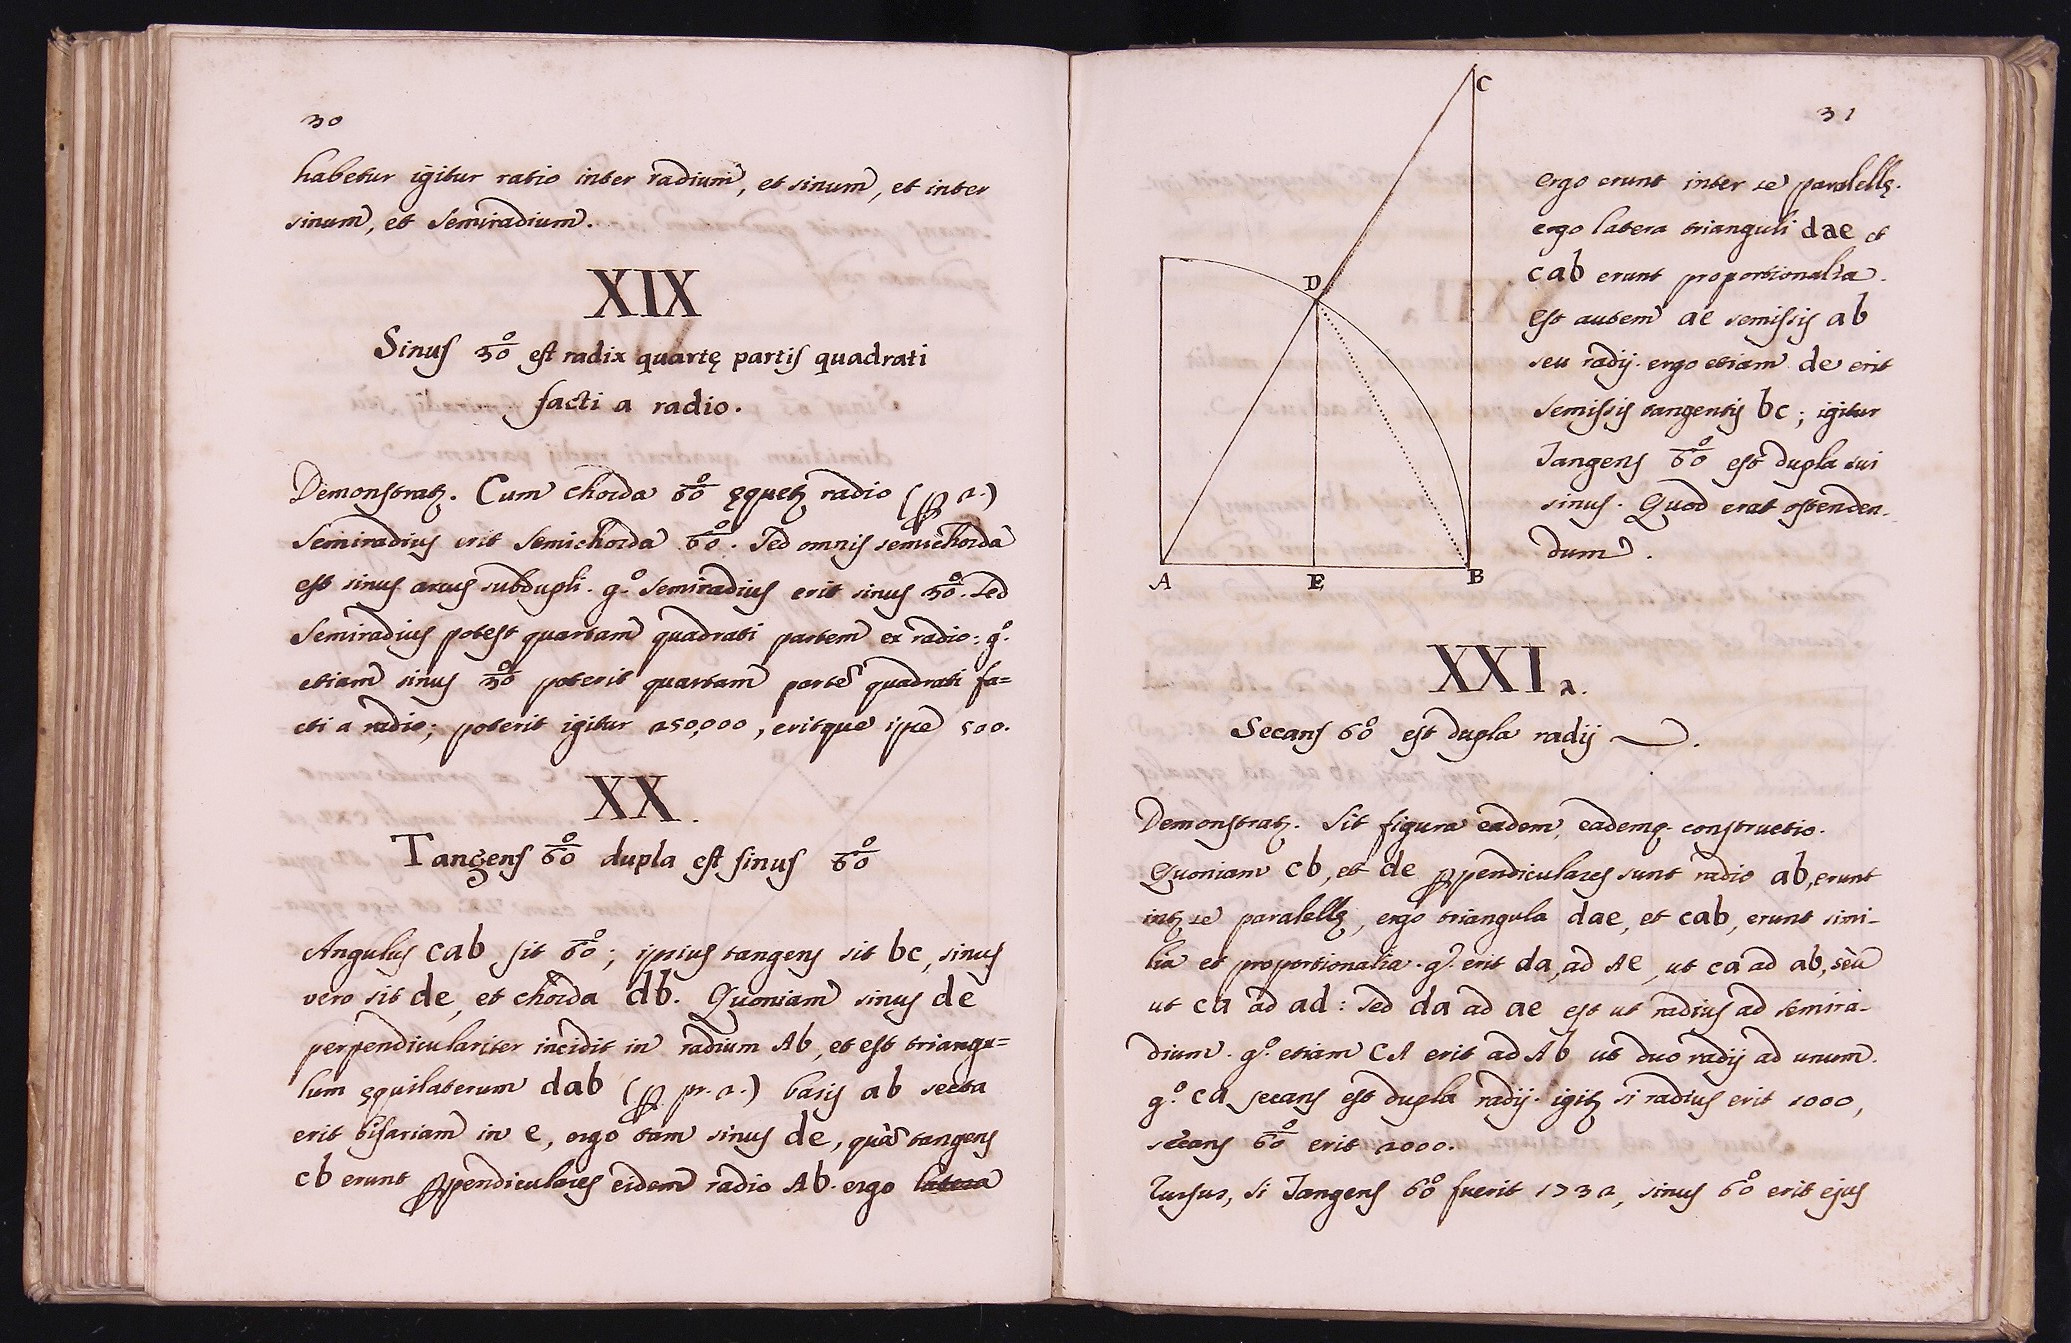 30
habetur igitur ratio inter radium, et sinum, et inter
sinum, et semiradium.
XIX
Sinus 30° est radix quartę partis quadrati
facti a radio.
Demonstratꝫ. Cum chorda 60° ęquetꝫ radio (ꝑ 2.)
semiradius erit semichorda 60°. Sed omnis semichorda
est sinus arcus subdupli. gͦ. semiradius erit sinus 30°. Sed
semiradius potest quartam quadrati partem ex radio: gͦ.
etiam sinus 30° poterit quartam partē quadrati fa=
cti a radio; poterit igitur 250,000, eritque ipse 500.
XX.
Tangens 60° dupla est sinus 60°
Angulus cab sit 60°; ipsius tangens sit bc, sinus
vero sit de, et chorda db. Quoniam sinus de
perpendiculariter incidit in radium Ab, et est triangu=
lum ęquilaterum dab (ꝑ pr. 2.) basis ab secta
erit bifariam in e, ergo tam sinus de, quā tangens
cb erunt ꝑpendiculares eidem radio Ab. ergo latera
31
C
D
A E B
ergo erunt inter se paralellę.
ergo latera trianguli dae et
cab erunt proportionalia.
est autem ae semissis ab
seu radij. ergo etiam de erit
semissis tangentis bc; igitur
Tangens 60° est dupla sui
sinus. Quod erat ostenden-
dum.
XXI a.
Secans 60° est dupla radij.
Demonstratꝫ. Sit figura eadem, eademq. constructio.
Quoniam cb, et de ꝑpendiculares sunt radio ab, erunt
intꝫ se paralellę, ergo triangula dae, et cab, erunt simi-
lia et proportionalia. gͦ. erit da, ad Ae, ut ca ad ab, sèu
ut ca ad ad: sed da ad ae est ut radius ad semira-
dium. gͦ. etiam CA erit ad Ab ut duo radij ad unum.
gͦ. ca secans est dupla radij. igitꝫ si radius erit 1000,
secans 60° erit 2000.
Rursus, si Tangens 60° fuerit 1732, sinus 60° erit ejus